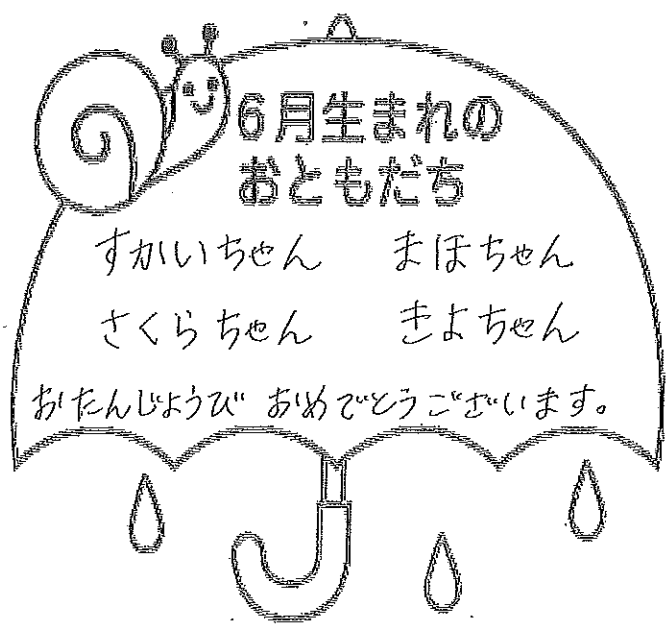 6月生まれの
おともだち
すかいちゃん まほちゃん
さくらちゃん きよちゃん
おたんじょうび おめでとうございます。